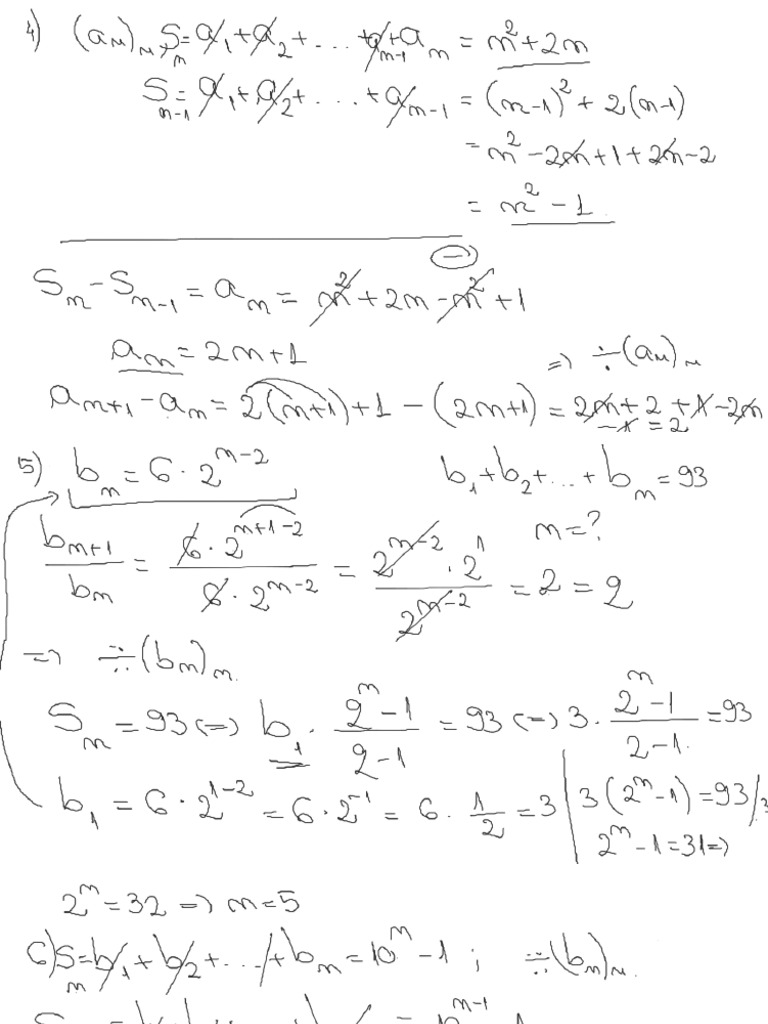 4) (aₙ)ₙ, Sₙ = a₁ + a₂ + ... + aₙ₋₁ + aₙ = n² + 2n
Sₙ₋₁ = a₁ + a₂ + ... + aₙ₋₁ = (n-1)² + 2(n-1)
= n² - 2n + 1 + 2n - 2
= n² - 1
(-)
Sₙ - Sₙ₋₁ = aₙ = n² + 2n - n² + 1
aₙ = 2n + 1 => ÷(aₙ)ₙ
aₙ₊₁ - aₙ = 2(n+1) + 1 - (2n+1) = 2n + 2 + 1 - 2n
- 1 = 2
5) bₙ = 6 · 2ⁿ⁻² b₁ + b₂ + ... + bₙ = 93
n = ?
bₙ₊₁/bₙ = 6 · 2ⁿ⁺¹⁻²/6 · 2ⁿ⁻² = 2ⁿ⁻² · 2¹/2ⁿ⁻² = 2 = q
=> ÷÷(bₙ)ₙ
Sₙ = 93 <=> b₁ · 2ⁿ - 1/2 - 1 = 93 <=> 3 · 2ⁿ - 1/2 - 1 = 93
b₁ = 6 · 2¹⁻² = 6 · 2⁻¹ = 6 · 1/2 = 3 | 3(2ⁿ - 1) = 93 /:3
2ⁿ - 1 = 31 =>
2ⁿ = 32 => n = 5
6) Sₙ = b₁ + b₂ + ... + bₙ = 10ⁿ - 1 ; ÷÷(bₙ)ₙ